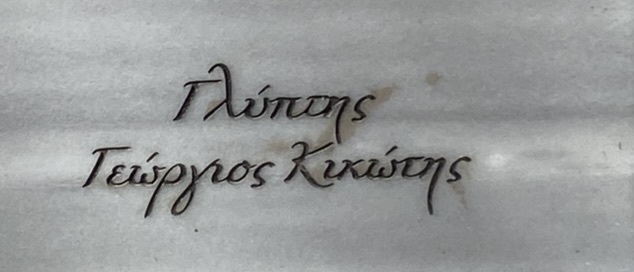 Γλύπτης
Γεώργιος Κικώτης